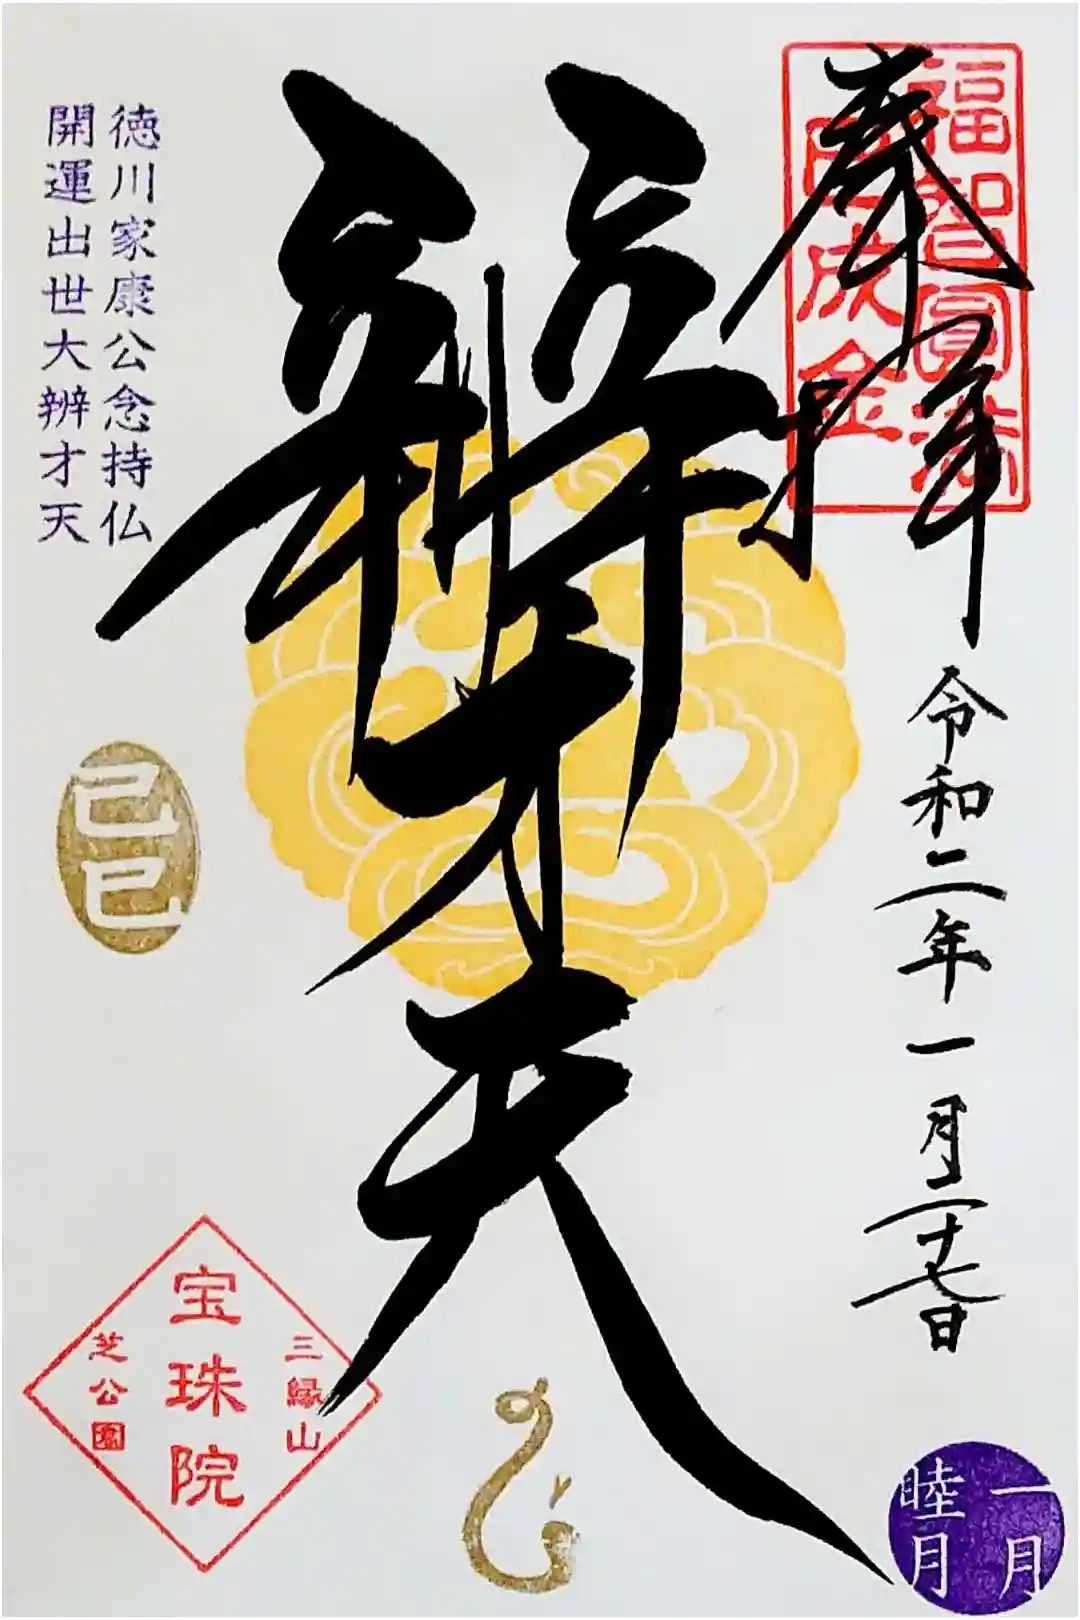 奉拝
福智圓満
巳成金
令和二年一月二十七日
辨才天
徳川家康公念持仏
開運出世大辨才天
己巳
三縁山
宝珠院
芝公園
一月
睦月